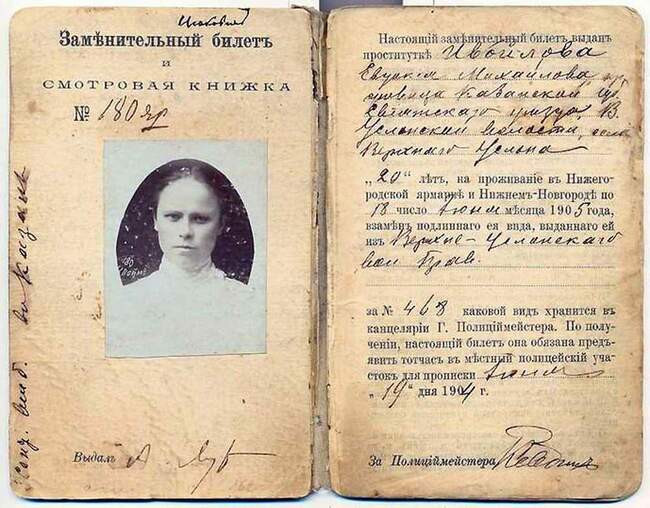 Замѣнительный билетъ
и
СМОТРОВАЯ КНИЖКА
№ 180 яр
Выдалъ
Настоящій замѣнительный билетъ выданъ
проституткѣ Ивойлова
Евдокія Михайлова
Казанской
Свіяжскаго уѣзда, В.
Услонской волости, села
Верхняго Услона
„20" лѣтъ, на проживаніе въ Нижего-
родской ярмаркѣ и Нижнемъ-Новгородѣ по
18 число іюня мѣсяца 1905 года,
взамѣнъ подлиннаго ея вида, выданнаго ей
изъ Верхне-Услонскаго
вол Прав.
за № 468 каковой видъ хранится въ
канцеляріи Г. Полиціймейстера. По получе-
ніи, настоящій билетъ она обязана предъ-
явить тотчасъ въ мѣстный полицейскій уча-
стокъ для прописки іюня
„19" дня 1904 г.
За Полиціймейстера